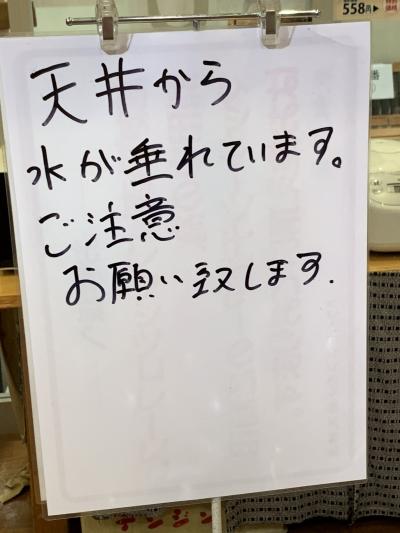 558円▶
天井から
水が垂れています。
ご注意
お願い致します.
テンジン